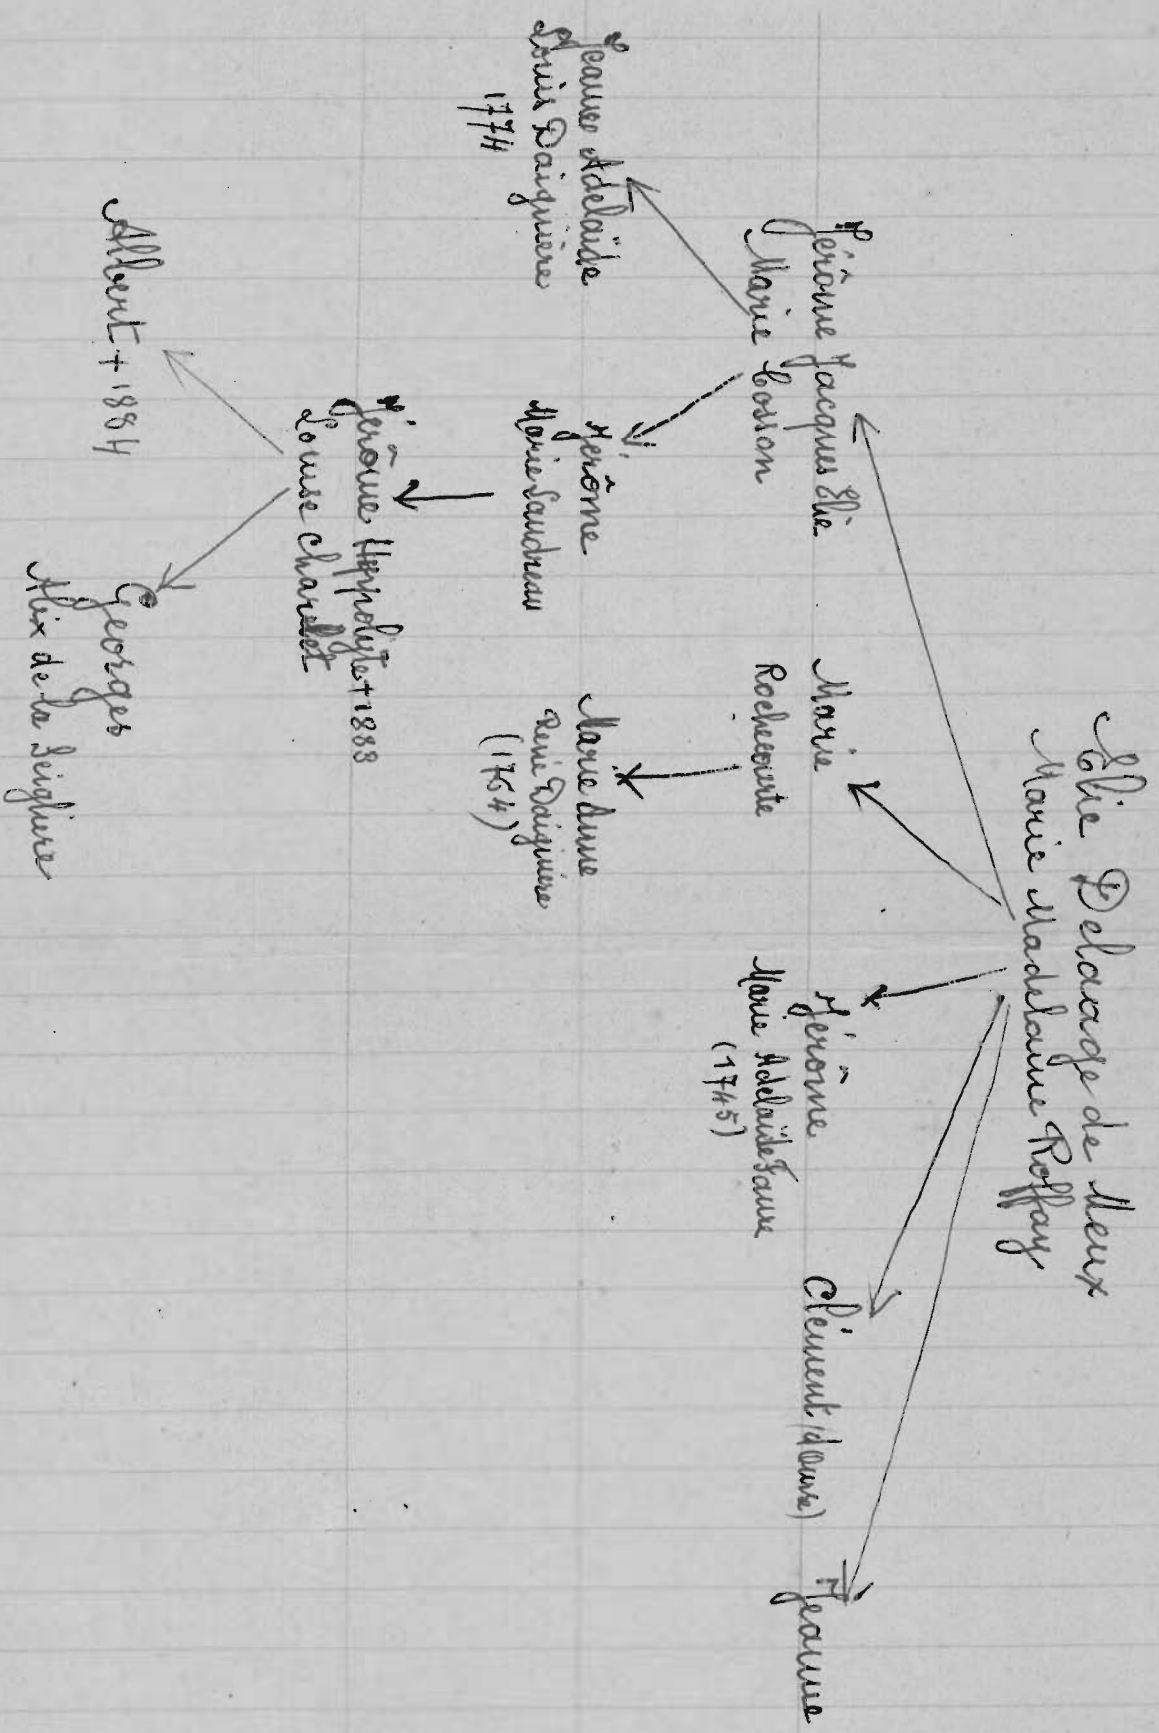 Elie Delaage de Meux
Marie Madelaine Roffay
Jérôme Jacques Elie
Marie Cosson
Marie
Rochecouste
Jérôme
Marie Adelaïde Faure
(1745)
Clément
Jeanne
Jeanne Adelaïde
Louis Daiguière
1774
Jérôme
Marie Landreau
Marie Anne
René Daiguière
(1764)
Jérôme Hippolyte + 1883
Louise Charelet
Albert + 1884
Georges
Alix de la Seiglière